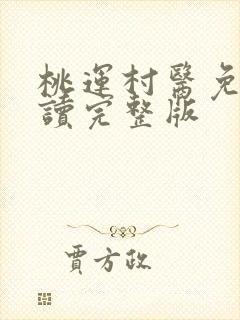 桃運村醫免
讀完整版
賈方政